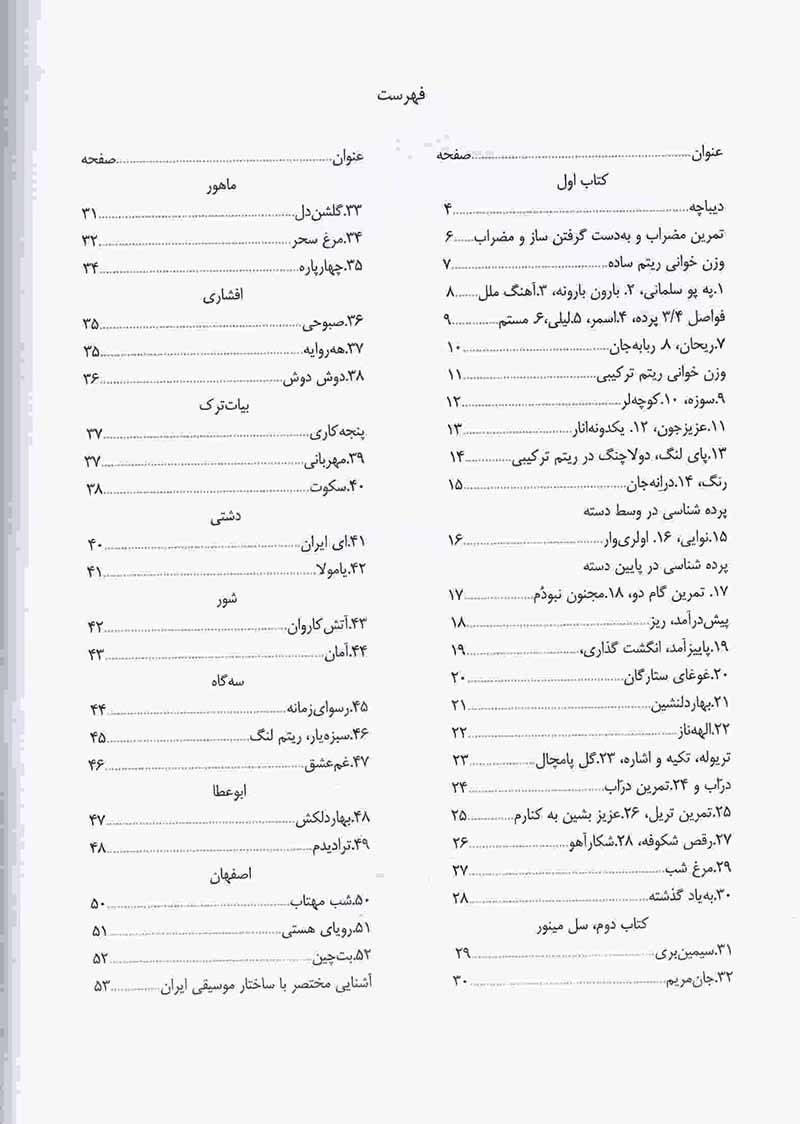 فهرست
عنوان......صفحه
کتاب اول
دیباچه......۴
تمرین مضراب و به‌دست گرفتن ساز و مضراب......۶
وزن خوانی ریتم ساده......۷
۱.په پو سلمانی، ۲. بارون بارونه، ۳.آهنگ ملل......۸
فواصل ۳/۴ پرده، ۴.اسمر، ۵.لیلی،۶. مستم......۹
۷.ریحان، ۸. ربابه‌جان......۱۰
وزن خوانی ریتم ترکیبی......۱۱
۹.سوزه، ۱۰.کوچه‌لر......۱۲
۱۱.عزیزجون، ۱۲. یکدونه‌انار......۱۳
۱۳.پای لنگ، دولاچنگ در ریتم ترکیبی......۱۴
رنگ، ۱۴.درانه‌جان......۱۵
پرده شناسی در وسط دسته
۱۵.نوایی، ۱۶. اولری‌وار......۱۶
پرده شناسی در پایین دسته
۱۷. تمرین گام دو، ۱۸.مجنون نبودُم......۱۷
پیش‌درآمد، ریز......۱۸
۱۹.پاییزآمد، انگشت گذاری،......۱۹
۲۰.غوغای ستارگان......۲۰
۲۱.بهاردلنشین......۲۱
۲۲.الهه‌ناز......۲۲
تریوله، تکیه و اشاره، ۲۳.گل پامچال......۲۳
درّاب و ۲۴.تمرین درّاب......۲۴
۲۵.تمرین تریل، ۲۶.عزیز بشین به کنارم......۲۵
۲۷.رقص شکوفه، ۲۸.شکارآهو......۲۶
۲۹.مرغ شب......۲۷
۳۰.به‌یاد گذشته......۲۸
کتاب دوم، سل مینور
۳۱.سیمین‌بری......۲۹
۳۲.جان‌مریم......۳۰
عنوان......صفحه
ماهور
۳۳.گلشن‌دل......۳۱
۳۴.مرغ سحر......۳۲
۳۵.چهارپاره......۳۴
افشاری
۳۶.صبوحی......۳۵
۳۷.هه‌روایه......۳۵
۳۸.دوش دوش......۳۶
بیات‌ترک
پنجه‌کاری......۳۷
۳۹.مهربانی......۳۷
۴۰.سکوت......۳۸
دشتی
۴۱.ای ایران......۴۰
۴۲.یامولا......۴۱
شور
۴۳.آتش‌کاروان......۴۲
۴۴.آمان......۴۳
سه‌گاه
۴۵.رسوای‌زمانه......۴۴
۴۶.سبزه‌یار، ریتم لنگ......۴۵
۴۷.غم‌عشق......۴۶
ابوعطا
۴۸.بهاردلکش......۴۷
۴۹.ترادیدم......۴۸
اصفهان
۵۰.شب مهتاب......۵۰
۵۱.رویای هستی......۵۱
۵۲.بت‌چین......۵۲
آشنایی مختصر با ساختار موسیقی ایران......۵۳